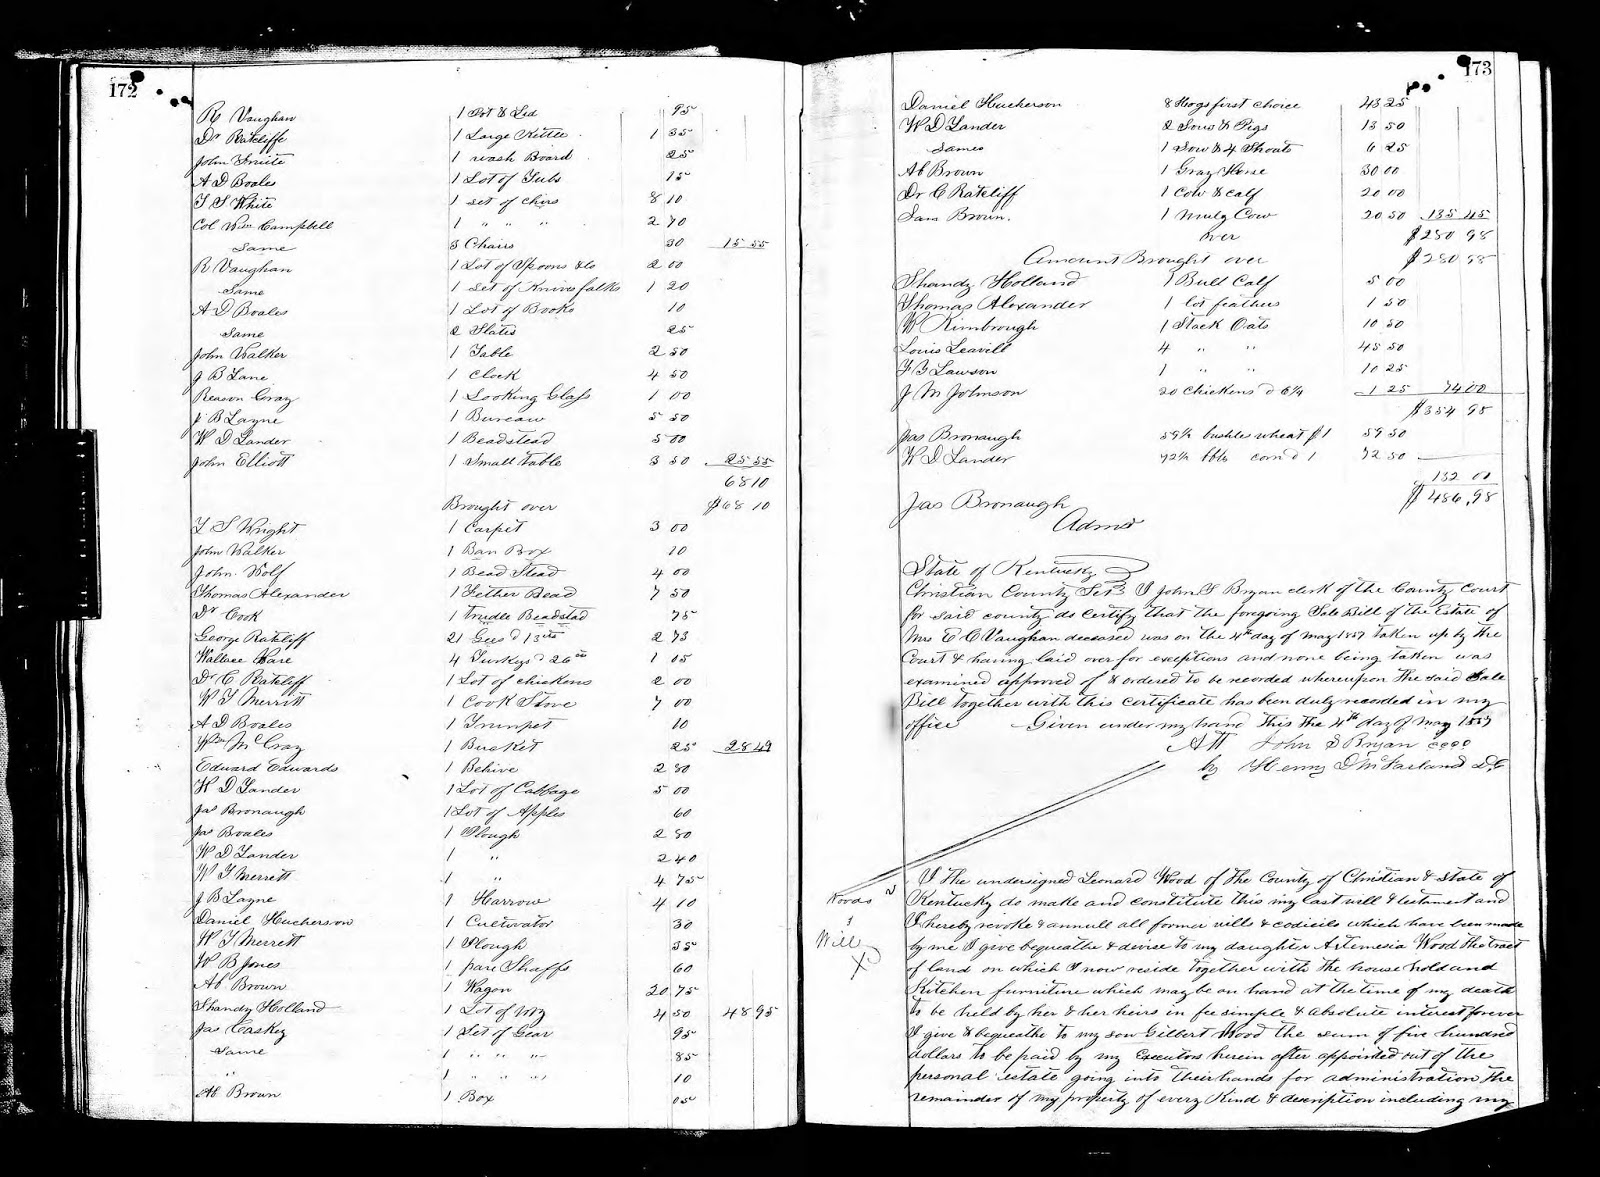 172
R Vaughan 1 Pot & Led 95
Dr Ratcliffe 1 Large Kettle 1 35
John Fruite 1 wash Board 25
A D Boales 1 Lot of Tubs 15
T S White 1 set of chirs 8 10
Col Wm Campbell 1 " " " 2 70
Same 3 Chairs 30 15 55
R Vaughan 1 Lot of Spoons &c 2 00
Same 1 set of Knives falks 1 20
A D Boales 1 Lot of Books 10
Same 2 Slates 25
John Walker 1 Table 2 50
J B Lane 1 Clock 4 50
Reason Gray 1 Looking Glass 1 00
J B Layne 1 Bureau 5 50
W D Lander 1 Beadstead 5 00
John Elliott 1 Small table 3 50 25 55
68 10
Brought over $68 10
T S Wright 1 Carpet 3 00
John Walker 1 Ban Box 10
John Wolf 1 Bead Stead 4 00
Thomas Alexander 1 Fether Bead 7 50
Dr Cook 1 Trudle Beadstad 75
George Ratcliff 21 Gees @ 13cts 2 73
Wallace Ware 4 Turkys @ 26 1 05
Dr C Ratcliff 1 Lot of chickens 2 00
W T Merritt 1 Cook Stove 7 00
A D Boales 1 Trumpet 10
Wm McGray 1 Bucket 25 28 49
Edward Edwards 1 Behive 2 80
W D Lander 1 Lot of Cabbage 5 00
Jas Bronaugh 1 Lot of Apples 60
Jas Boales 1 Plough 2 80
W D Lander 1 " 2 40
W T Merrett 1 " 4 75
J B Layne 1 Harrow 4 10
Daniel Hucherson 1 Cultivator 30
W T Merrett 1 Plough 35
W B Jones 1 pare Shaffs 60
Ab Brown 1 Wagon 20 75
Shandy Holland 1 Lot of 4 50 48 95
Jas Caskey 1 Set of Gear 95
Same 1 " " " 85
" 1 " " " 10
Ab Brown 1 Box 05
173
Daniel Hucherson 8 Hogs first choice 43 25
W D Lander 2 Sows & Pigs 13 50
Same 1 Sow & 4 Shoats 6 25
Ab Brown 1 Gray Horse 30 00
Dr C Ratcliff 1 Cow & Calf 20 00
Sam Brown. 1 Muly Cow 20 50 135 45
over $280 98
Amount Brought over $280 98
Shandy Holland 1 Bull Calf 5 00
Thomas Alexander 1 lot feathers 1 50
W Kimbrough 1 Stack Oats 10 50
Louis Leavill 4 " " 45 50
Lawson 1 " " 10 25
J M Johnson 20 chickens @ 6¼ 1 25 74 00
$354 98
Jas Bronaugh 59½ bushles wheat $1 59 50
W D Lander 72½ bbls corn @ 1 72 50
132 00
$486.98
Jas Bronaugh
Admr
State of Kentucky
Christian County Sct I John S Bryan clerk of the County Court
for said county do certify that the foregoing Sale Bill of the Estate of
Mrs E C Vaughan deceased was on the 4th day of may 1857 taken up by the
Court & having laid over for exceptions and none being taken was
examined approved of & ordered to be recorded whereupon the said Sale
Bill together with this certificate has been duly recorded in my
office Given under my hand This the 4th day of may 1857
Att John S Bryan cccc
by Henry McFarland D.C
Woods
Will
X
I The undersigned Leonard Wood of the County of Christian & State of
Kentucky do make and constitute this my last will & testament and
I hereby revoke & annull all former wills & codicils which have been made
by me I give bequeathe & devise to my daughter Artemesia Wood the tract
of land on which I now reside together with the house hold and
Kitchen furniture which may be on hand at the time of my death
to be held by her & her heirs in fee simple & absolute interest forever
I give & bequeathe to my son Gilbert Wood the sum of five hundred
dollars to be paid by my Executors herein after appointed out of the
personal estate going into their hands for administration the
remainder of my property of every Kind & description including my